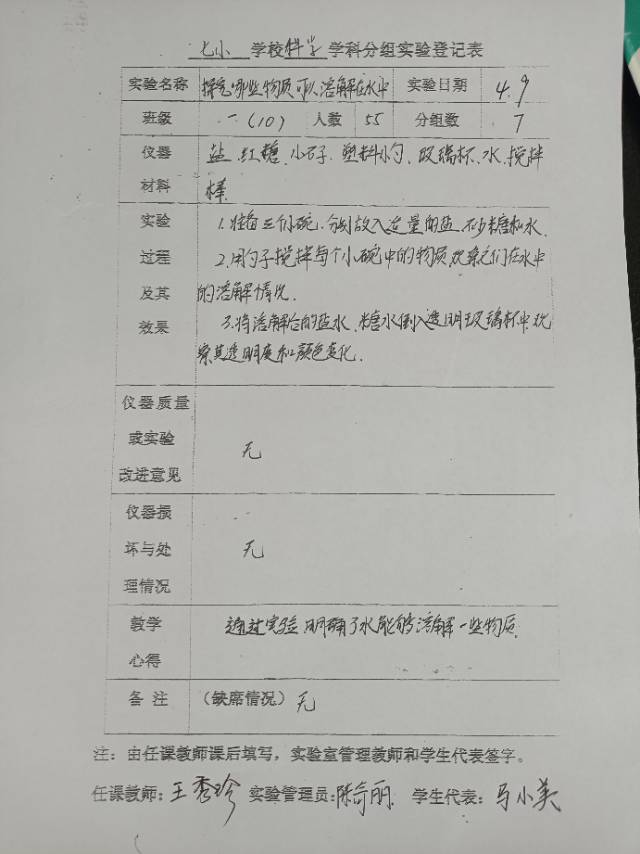 七小 学校科学学科分组实验登记表
实验名称 探究哪些物质可以溶解在水中 实验日期 4.9
班级 一(10) 人数 55 分组数 7
仪器 盐、红糖、小石子、塑料小勺、玻璃杯、水、搅拌
材料 棒
实验 1.准备三个小碗,分别放入适量的盐、砂糖和水.
过程 2.用勺子搅拌每个小碗中的物质,观察它们在水中
及其 的溶解情况.
效果 3.将溶解后的盐水、糖水倒入透明玻璃杯中,观
察其透明度和颜色变化.
仪器质量
或实验 无
改进意见
仪器损
坏与处 无
理情况
教学 通过实验,明确了水能够溶解一些物质.
心得
备注 (缺席情况) 无
注:由任课教师课后填写,实验室管理教师和学生代表签字。
任课教师:王秀珍 实验管理员:陈奇丽 学生代表:马小美